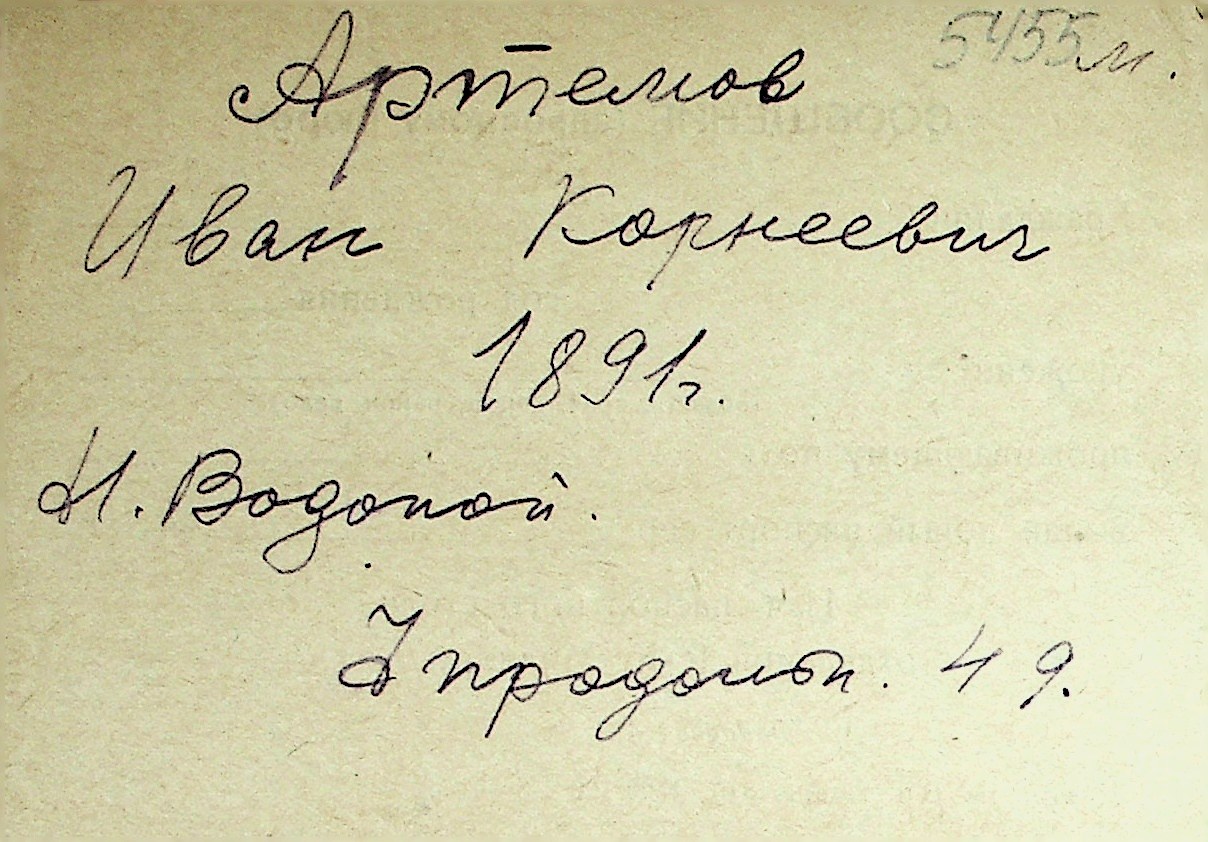 5455м.
Артемов
Иван Корнеевич
1891г.
Н. Водопой.
продольн. 49.